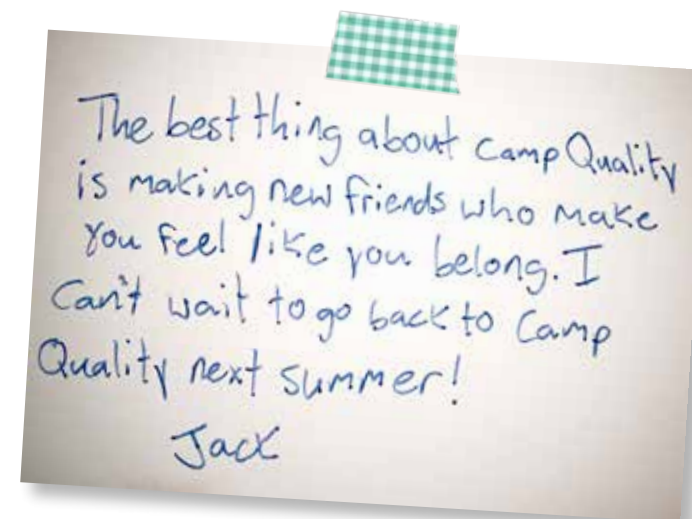 The best thing about Camp Quality
is making new friends who make
you feel like you belong. I
can't wait to go back to Camp
Quality next summer!
Jack